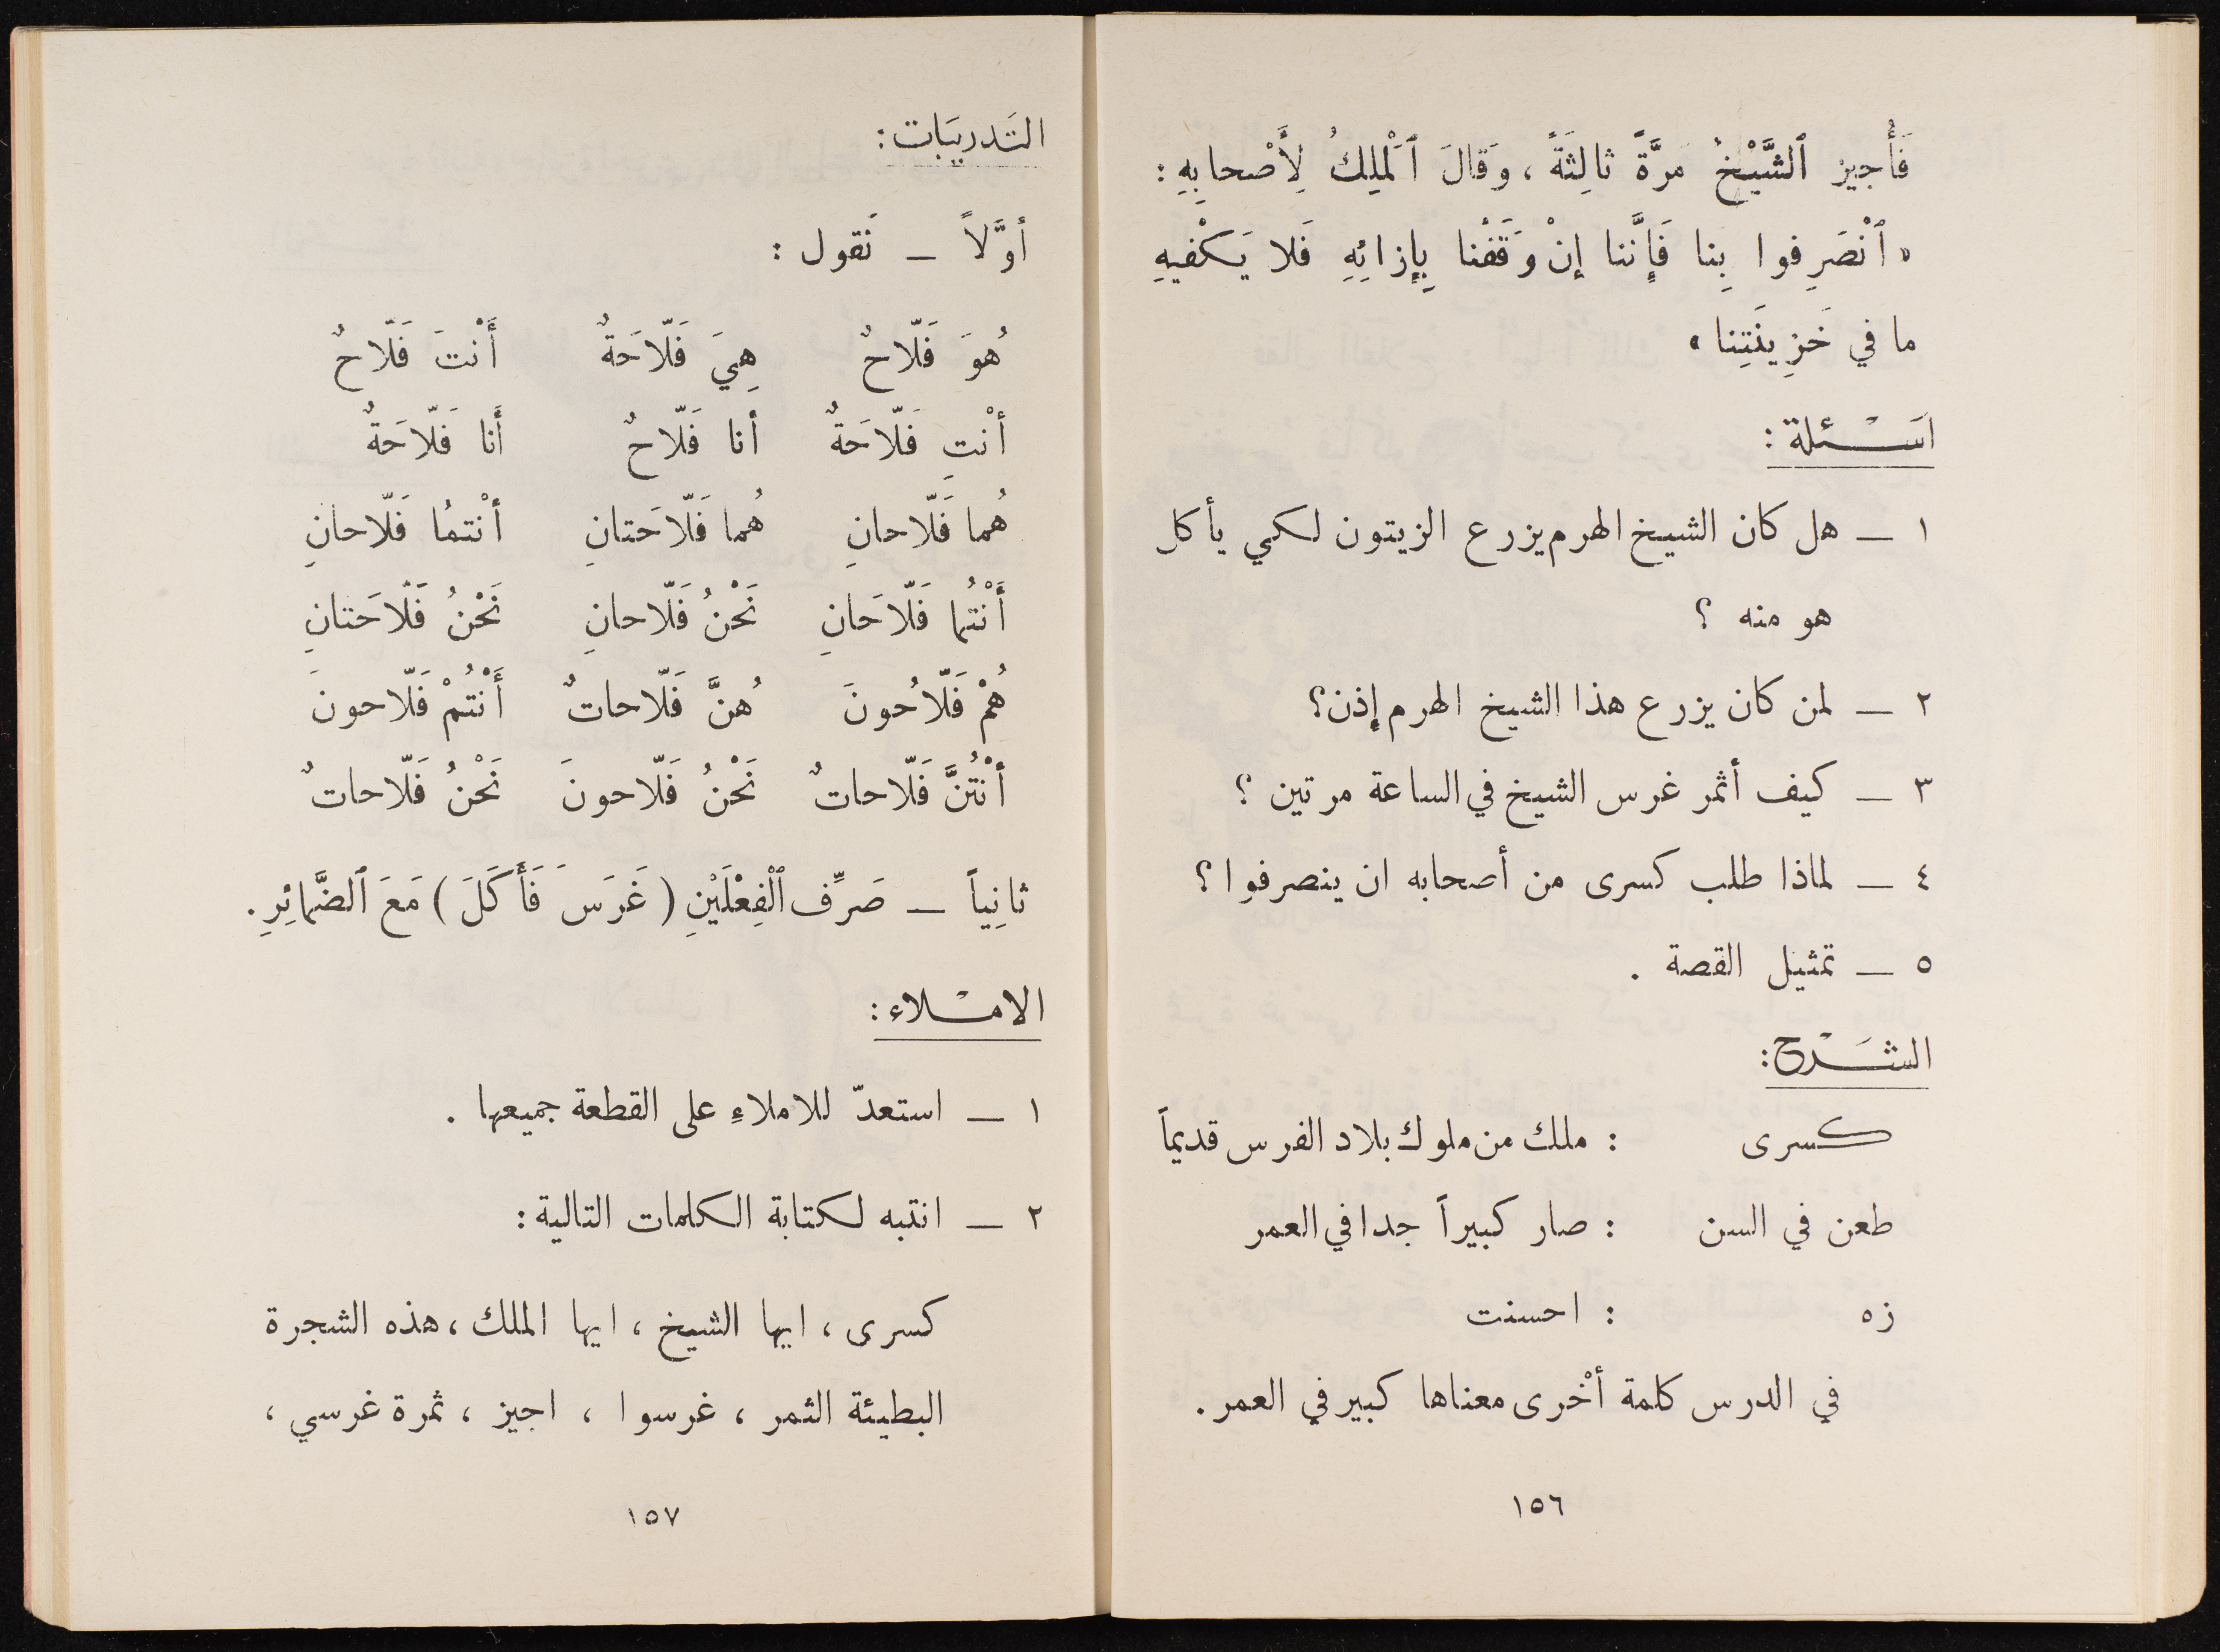 فَأُجيز ٱلشَّيْخُ مَرَّةً ثالِثَةً ، وَقالَ ٱلْمَلِكُ لِأَصْحابِهِ :
« ٱنْصَرِفوا بِنا فَإِنَّنا إنْ وَقَفْنا بِإِزائِهِ فَلا يَكْفيهِ
ما في خَزِينَتِنا »
اَسْئلة :
١ ــ هل كان الشيخ الهرم يزرع الزيتون لكي يأكل
هو منه ؟
٢ ــ لمن كان يزرع هذا الشيخ الهرم إذن؟
٣ ــ كيف أثمر غرس الشيخ في الساعة مرتين ؟
٤ ــ لماذا طلب كسرى من أصحابه ان ينصرفوا ؟
٥ ــ تمثيل القصة .
الشَرْح :
كسرى : ملك من ملوك بلاد الفرس قديماً
طعن في السن : صار كبيراً جدا في العمر
زه : احسنت
في الدرس كلمة أخْرى معناها كبير في العمر .
١٥٦
التَدريَبات :
أوَّلاً ــ نَقول :
هُوَ فَلّاحٌ هِيَ فَلّاحَةٌ أَنْتَ فَلّاحٌ
أنْتِ فَلّاحَةٌ أنا فَلّاحٌ أَنا فَلّاحَةٌ
هُما فَلّاحانِ هُما فَلّاحَتانِ أنْتمُا فَلّاحانِ
أَنْتُما فَلّاحَانِ نَحْنُ فَلّاحانِ نَحْنُ فَلّاحَتانِ
هُمْ فَلّاحُونَ هُنَّ فَلّاحاتٌ أَنْتُمْ فَلّاحونَ
أنْتُنَّ فَلّاحاتٌ نَحْنُ فَلّاحونَ نَحْنُ فَلّاحاتٌ
ثانِياً ــ صَرِّف ٱلْفِعْلَيْنِ ( غَرَسَ فَأَكَلَ ) مَعَ ٱلضَّمائِرِ .
الامْلاء :
١ ــ استعدّ للاملاءِ على القطعة جميعها .
٢ ــ انتبه لكتابة الكلمات التالية :
كسرى ، ايها الشيخ ، ايها الملك ، هذه الشجرة
البطيئة الثمر ، غرسوا ، اجيز ، ثمرة غرسي ،
١٥٧